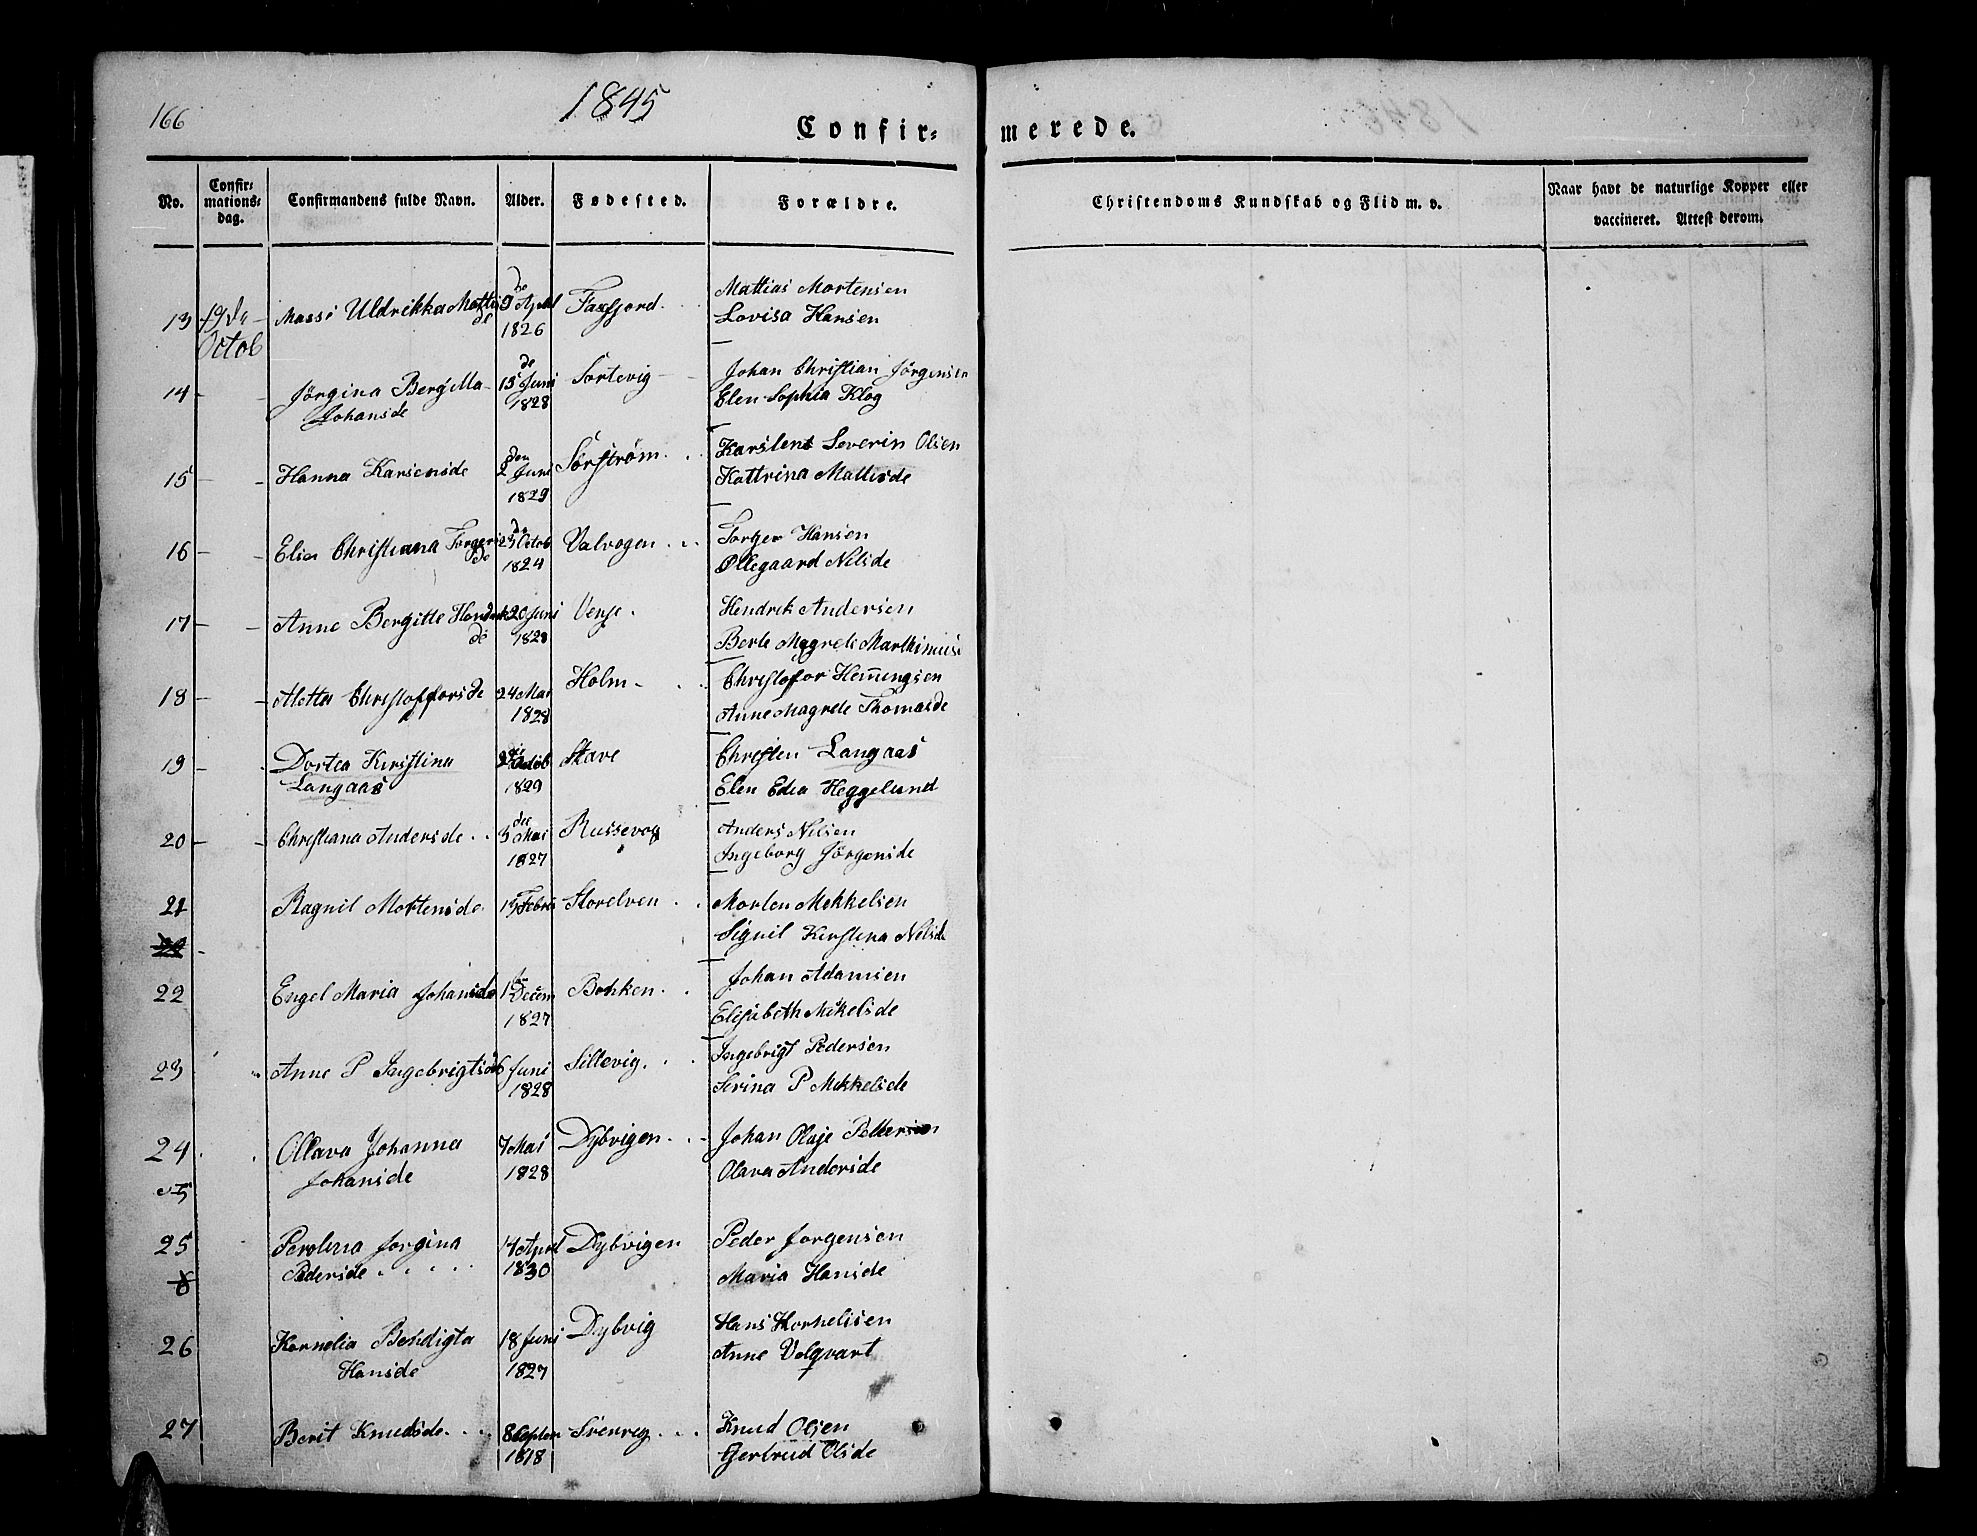 166
1845
Confir- merede.
No. Confir-mations-dag. Confirmandens fulde Navn. Alder. Fødested. Forældre. Christendoms Kundskab og Flid m. v. Naar havt de naturlige Kopper eller vaccineret. Attest derom.
13 19de Octob Uldrikka April 1826 Mattias Mortensen
Lovisa Hansen
14 Jörgina Bergitta Johansde 15de Juni 1828 Sortevig Johan Christian Jörgensen
Elen Sophia Klog
15 Hanna Karsensde den 2 Juni 1829 Sörström Severin Olsen
Kattrina Mattisde
16 Christiana Octob 1824 Valvogen Torger Hansen
Ollegaard Nilsde
17 Anne Bergitte 20 Juni 1828 Hendrik Andersen
Berte Magrete
18 Christoffersde 24 Mai 1828 Holm Christofor Hemingsen
Anne Magrete Thomasde
19 Dortea Kirstina Langaas 1829 Stave Christen Langaas
Elen Edea Heggelund
20 Christiana Andersde Mai 1827 Russevog Anders Nilsen
Ingeborg Jörgensde
21 Ragnil Mortensde Storelven Morten Mekkelsen
Signil Kirstina Nilsde
22 Engel Maria Johansde Decem 1827 Johan Adamsen
Elisabeth Mikelsde
23 Anne P Ingebrigtsde 6 Juni 1828 Sillevig Ingebrigt Pedersen
Serina P Mekkelsde
24 Olava Johanna Johansde 7 Mai 1828 Dybvigen Johan Petterson
Olava Andersde
25 Perolina Jorgina Pedersde 14 April 1830 Dybvigen Peder Jorgensen
Maria Hansde
26 Kornelia Bendigta Hansde 18 Juni 1827 Dybvig Hans Kornelisen
Anne Volqvart
27 Berit Knudsde 8 Septem 1818 Knud Olsen
Gjertrud Olsde